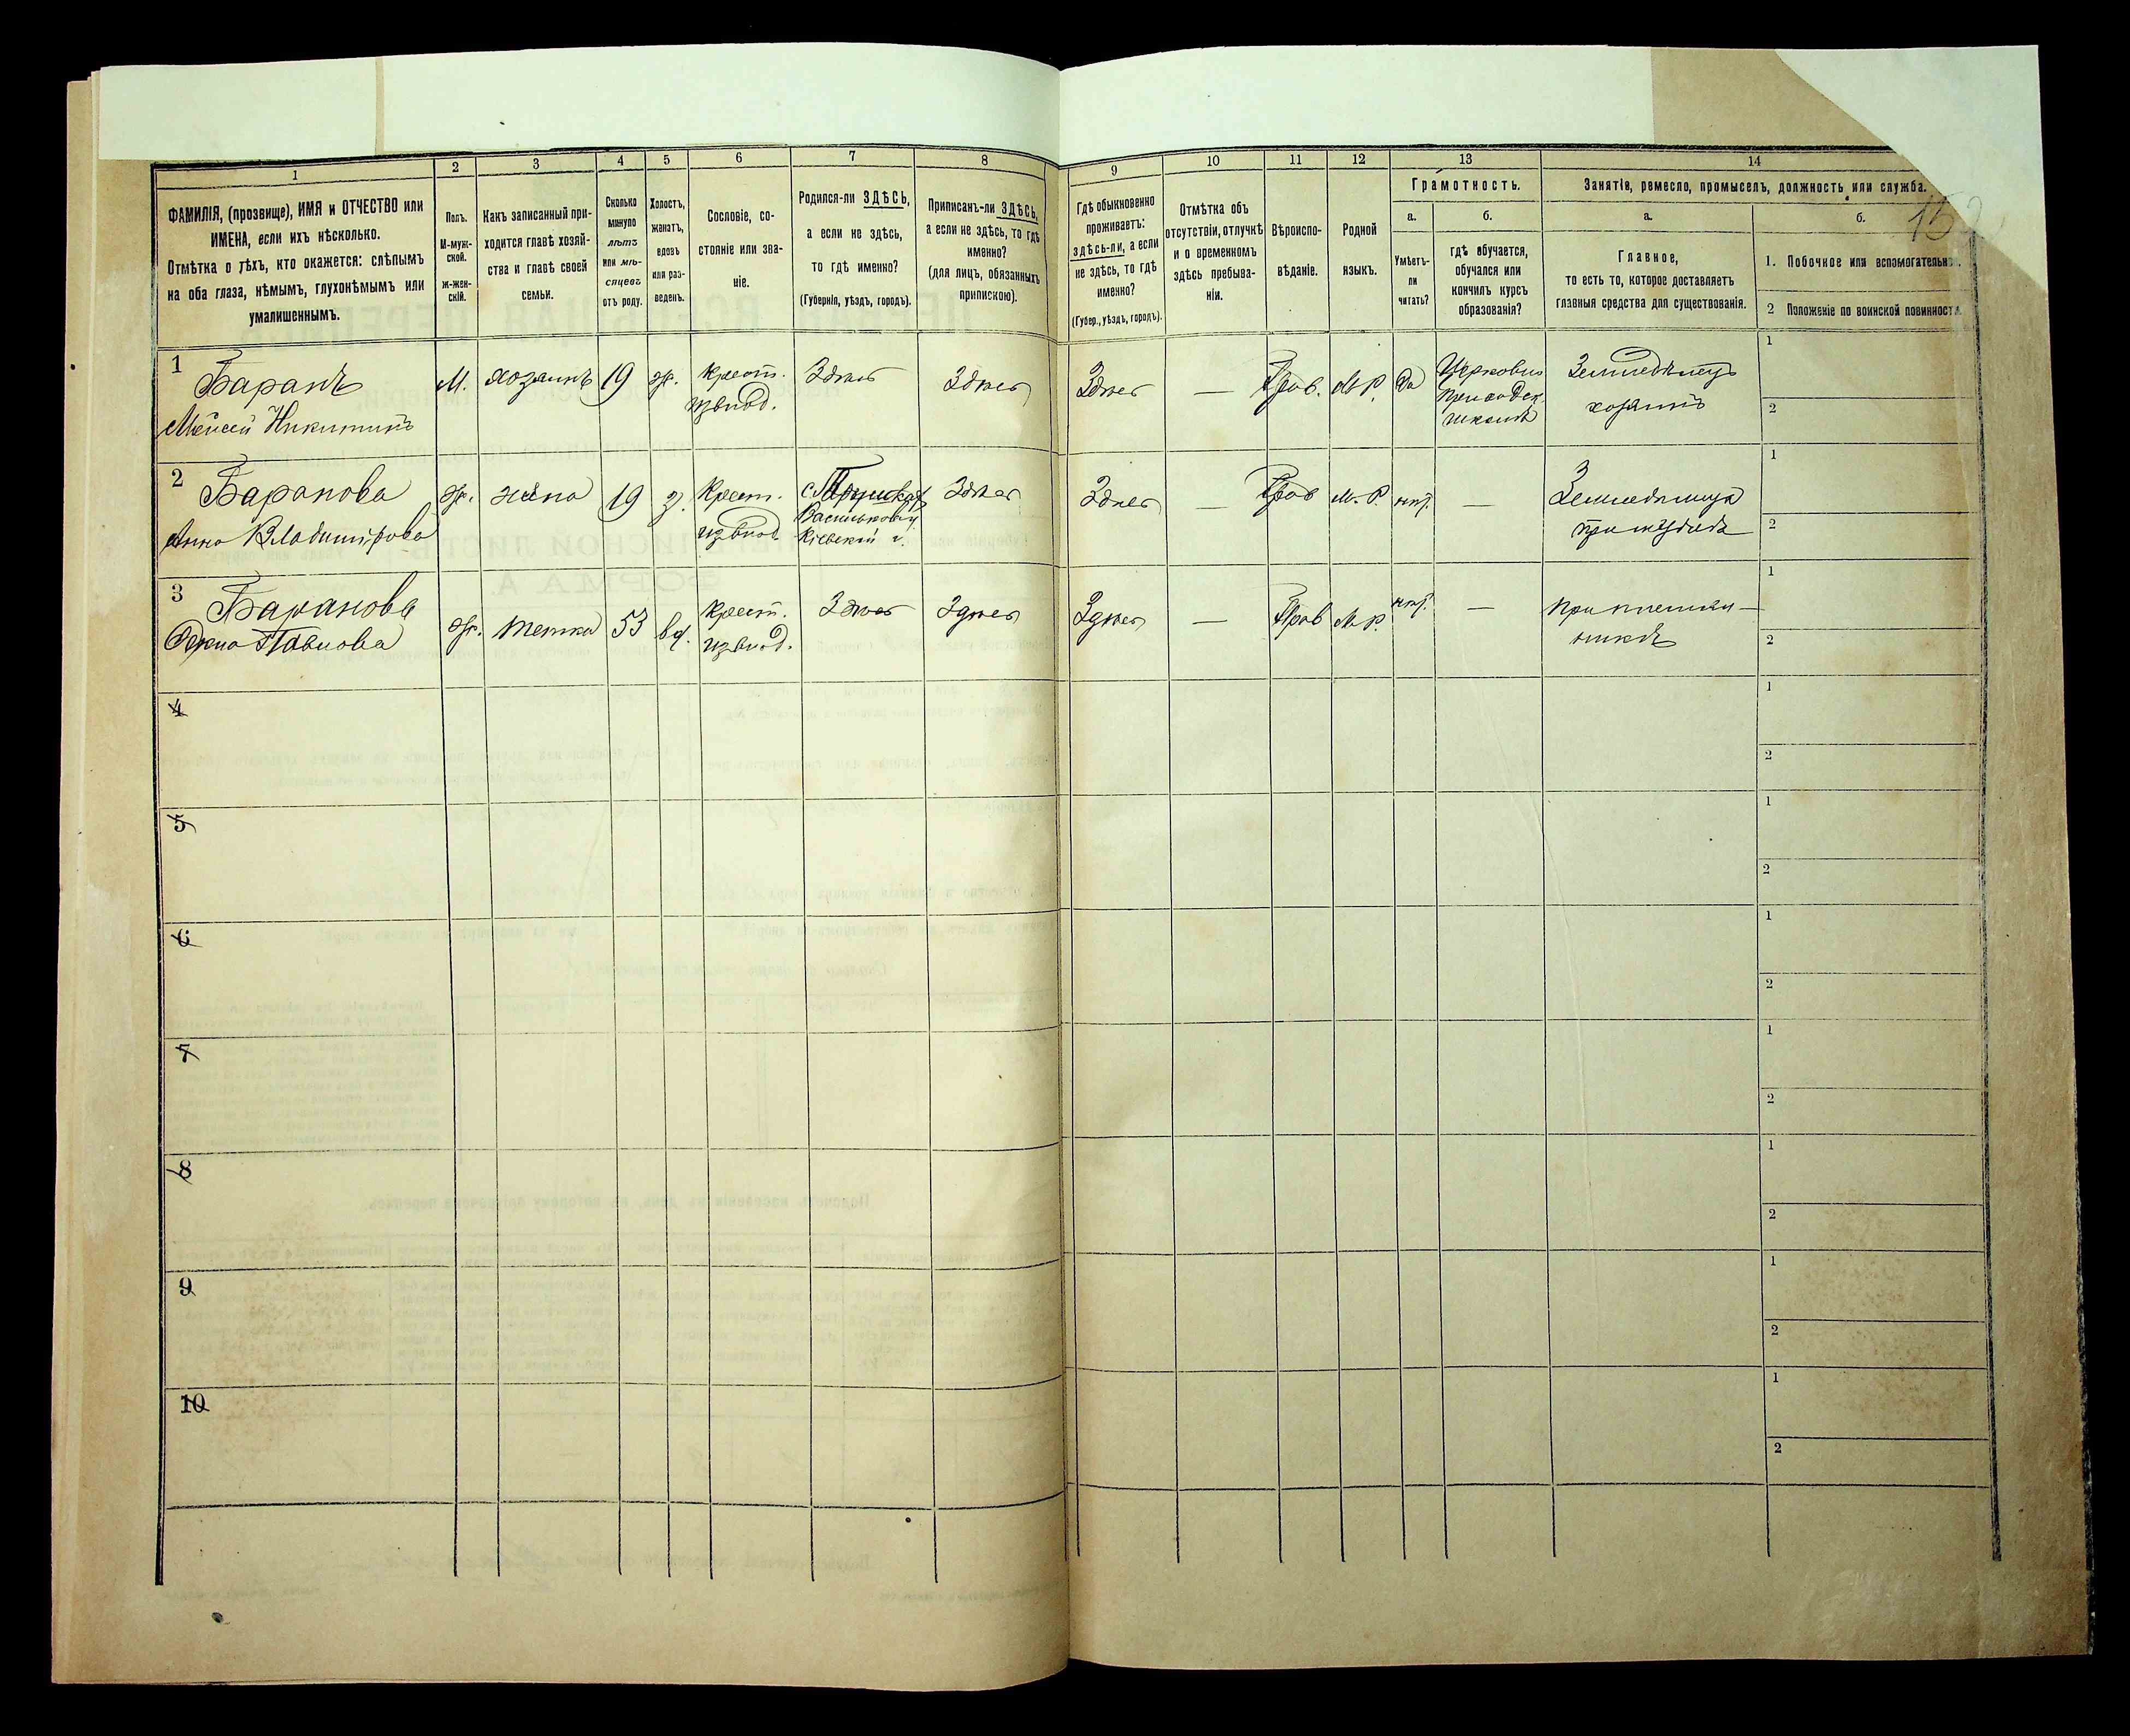 1
2
3
4
5
6
7
8
9
10
11
12
13
14
ФАМИЛІЯ, (прозвище), ИМЯ и ОТЧЕСТВО или
ИМЕНА, если ихъ нѣсколько.
Отмѣтка о тѣхъ, кто окажется: слѣпымъ
на оба глаза, нѣмымъ, глухонѣмымъ или
умалишеннымъ.
Полъ.
М-муж-
ской.
Ж-жен-
скій.
Какъ записанный при-
ходится главѣ хозяй-
ства и главѣ своей
семьи.
Сколько
минуло
лѣтъ
или мѣ-
сяцевъ
отъ роду.
Холостъ,
женатъ,
вдовъ
или раз-
веденъ.
Сословіе, со-
стояніе или зва-
ніе.
Родился-ли ЗДѢСЬ,
а если не здѣсь,
то гдѣ именно?
(Губернія, уѣздъ, городъ).
Приписанъ-ли ЗДѢСЬ,
а если не здѣсь, то гдѣ
именно?
(для лицъ, обязанныхъ
припискою).
Гдѣ обыкновенно
проживаетъ:
здѣсь-ли, а если
не здѣсь, то гдѣ
именно?
(Губер., уѣздъ, городъ).
Отмѣтка объ
отсутствіи, отлучкѣ
и о временномъ
здѣсь пребыва-
ніи.
Вѣроиспо-
вѣданіе.
Родной
языкъ.
Грамотность.
а.
Умѣетъ-
ли
читать?
б.
гдѣ обучается,
обучался или
кончилъ курсъ
образованія?
Занятія, ремесло, промыселъ, должность или служба.
а.
Главное,
то есть то, которое доставляетъ
главныя средства для существованія.
б.
1. Побочное или вспомогательн
2 Положеніе по воинской повинности.
1
Баранъ
Мойсей Никитинъ
М.
хозяинъ
19
ж.
крест.
извлад.
Здѣсь
Здѣсь
Здѣсь
—
Прав.
М.Р.
Да
Церковно
приходск.
школѣ
Земледѣлецъ
хозяинъ
1
2
2
Баранова
Анна Владимірова
ж.
жена
19
з.
Крест.
извлад.
Васильковск
Кіевской г.
Здѣсь
Здѣсь
—
Прав
М.Р.
нѣт.
—
Земледѣлица
при мужѣ
1
2
3
Баранова
Павлова
ж.
тетка
53
вд.
Крест.
извлад.
Здѣсь
Здѣсь
Здѣсь
—
Прав
М.Р.
нѣт.
—
при племян-
никѣ
1
2
4
1
2
5
1
2
6
1
2
7
1
2
8
1
2
9
1
2
10
1
2